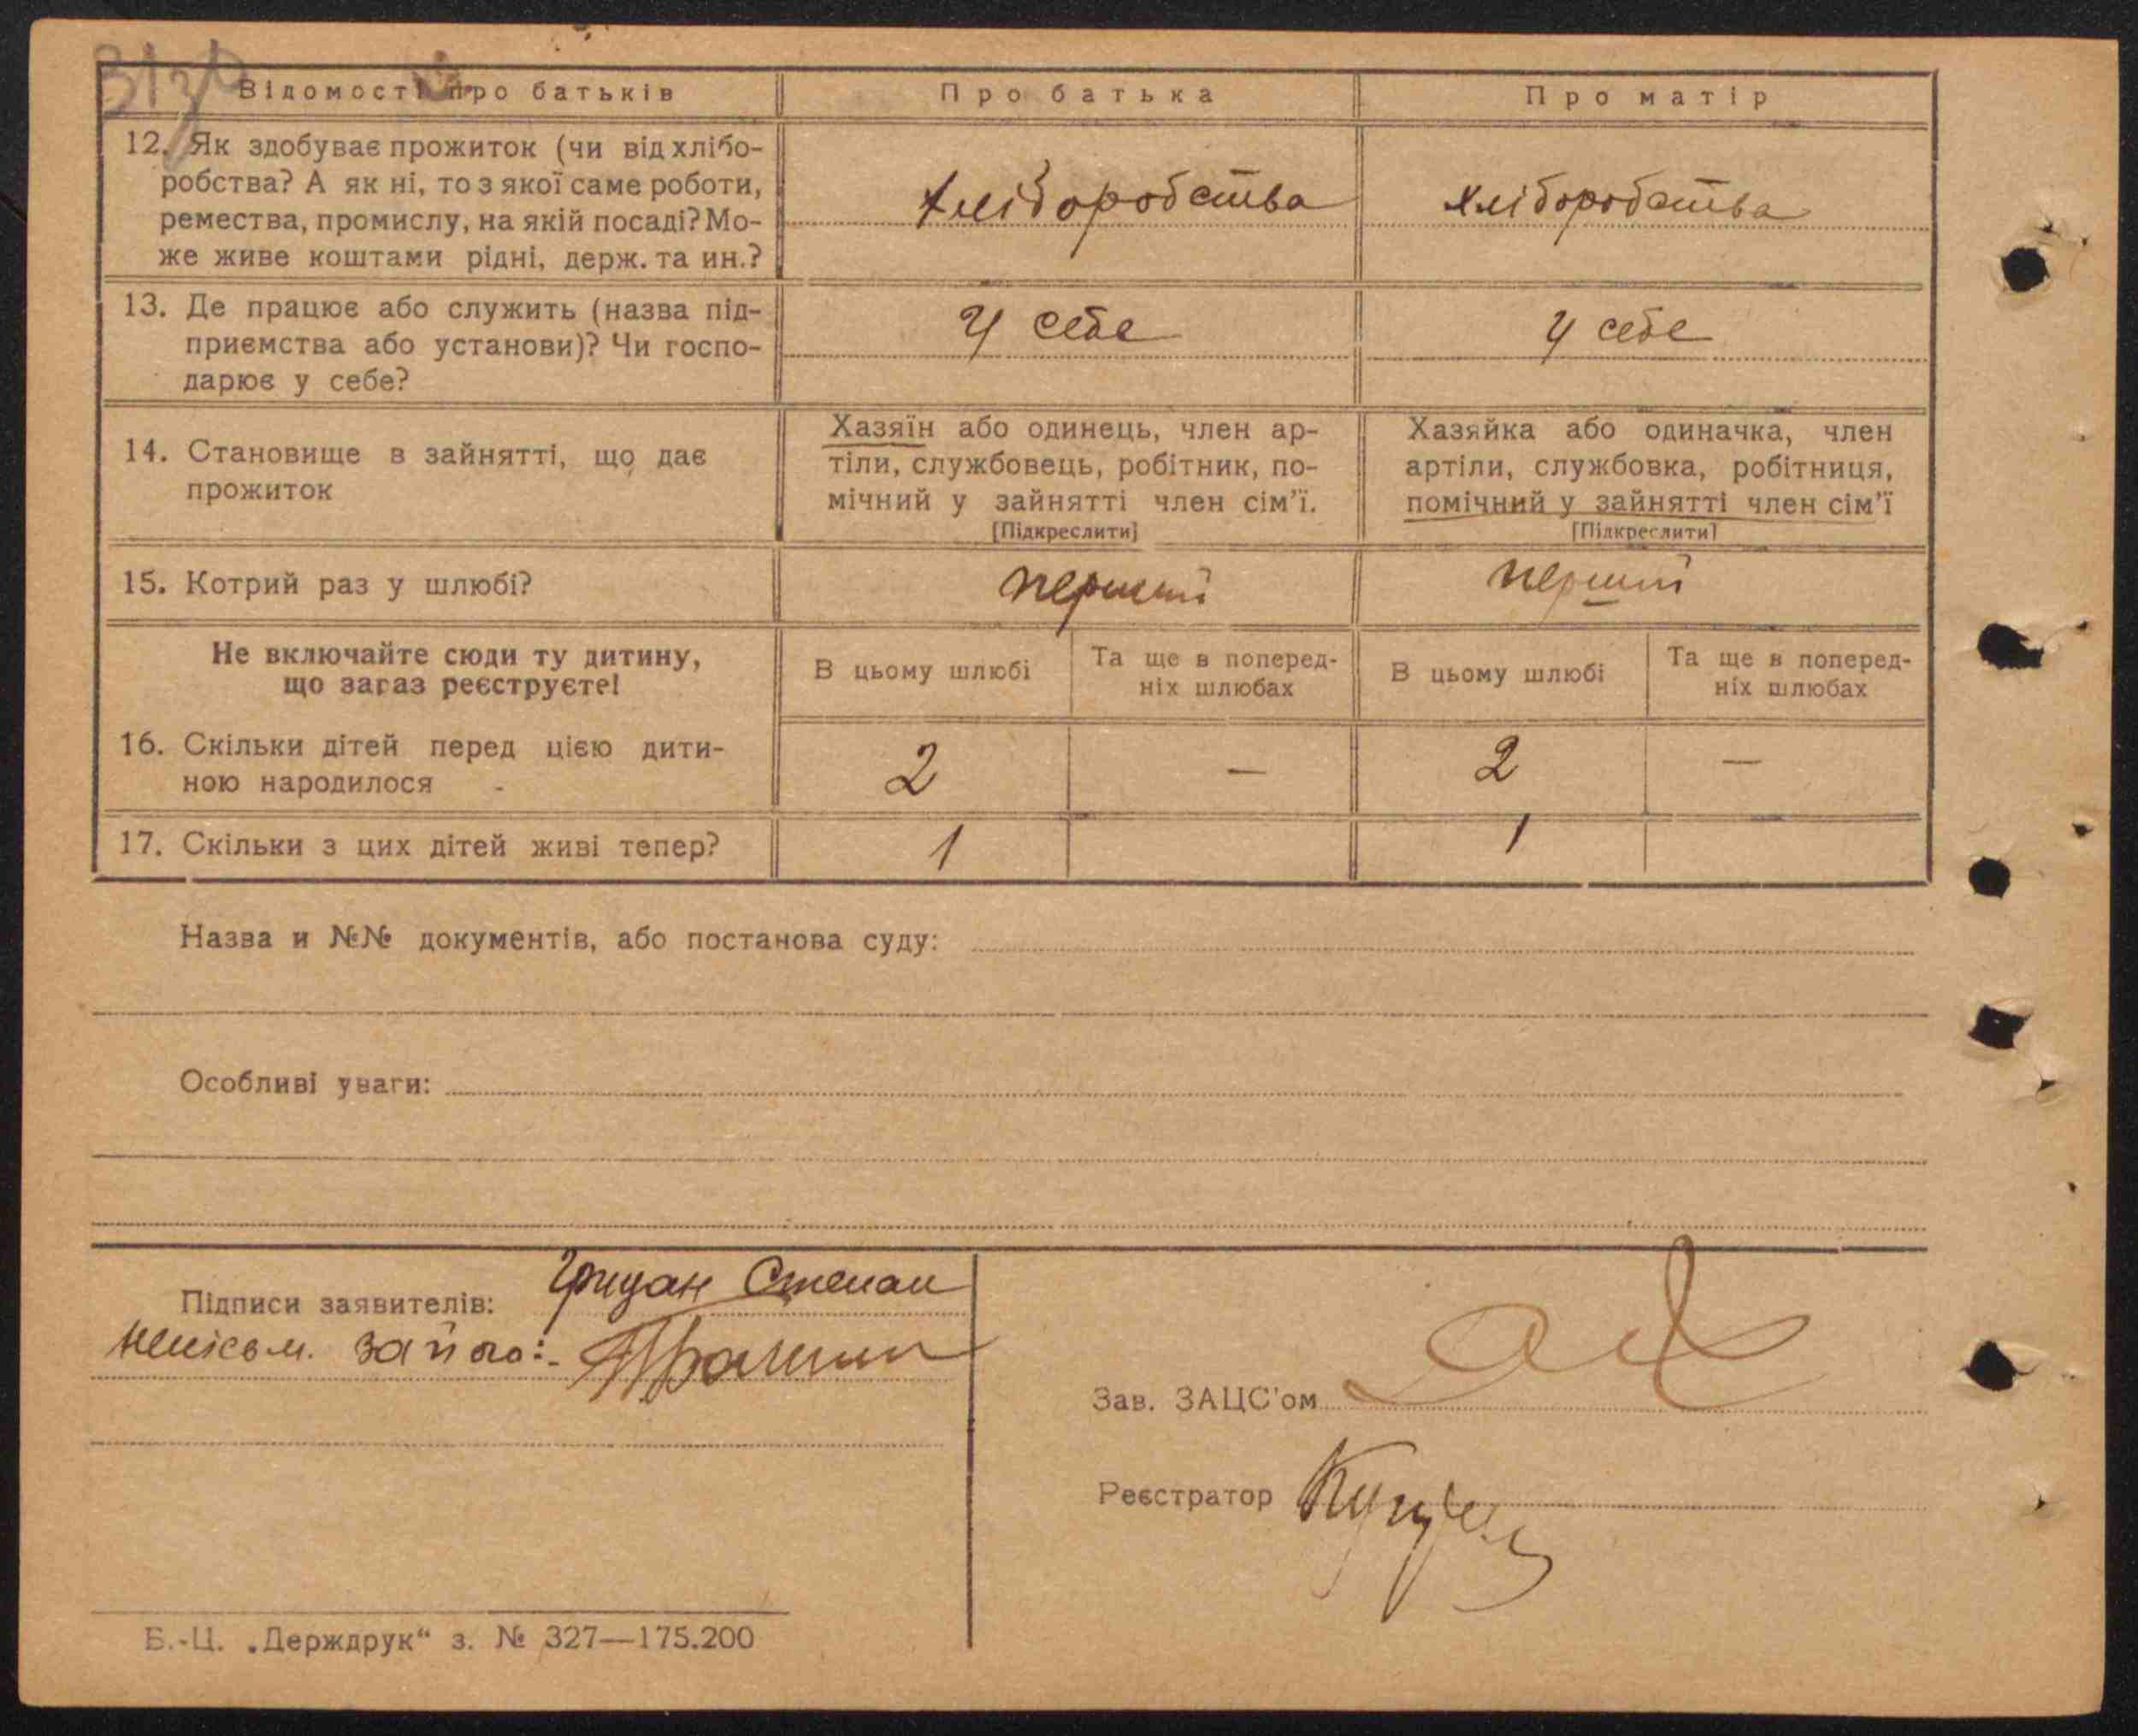 Відомості про батьків
Про батька
Про матір
12. Як здобуває прожиток (чи від хлібо-
робства? А як ні, то з якої саме роботи,
ремества, промислу, на якій посаді? Мо-
же живе коштами рідні, держ. та ин.?
хліборобства
хліборобства
13. Де працює або служить (назва під-
приємства або установи)? Чи госпо-
дарює у себе?
У себе
у себе
14. Становище в зайнятті, що дає
прожиток
Хазяїн або одинець, член ар-
тіли, службовець, робітник, по-
мічний у зайнятті член сім'ї.
[Підкреслити]
Хазяйка або одиначка, член
артіли, службовка, робітниця,
помічний у зайнятті член сім'ї
[Підкреслити]
15. Котрий раз у шлюбі?
перший
перший
Не включайте сюди ту дитину,
що зараз реєструєте!
В цьому шлюбі
Та ще в поперед-
ніх шлюбах
В цьому шлюбі
Та ще в поперед-
ніх шлюбах
16. Скільки дітей перед цією дити-
ною народилося
2
—
2
—
17. Скільки з цих дітей живі тепер?
1
1
Назва и №№ документів, або постанова суду:
Особливі уваги:
Підписи заявителів:
Грицан Степан
за його:
Зав. ЗАЦС'ом
Реєстратор
Б.-Ц. „Держдрук“ з. № 327—175.200